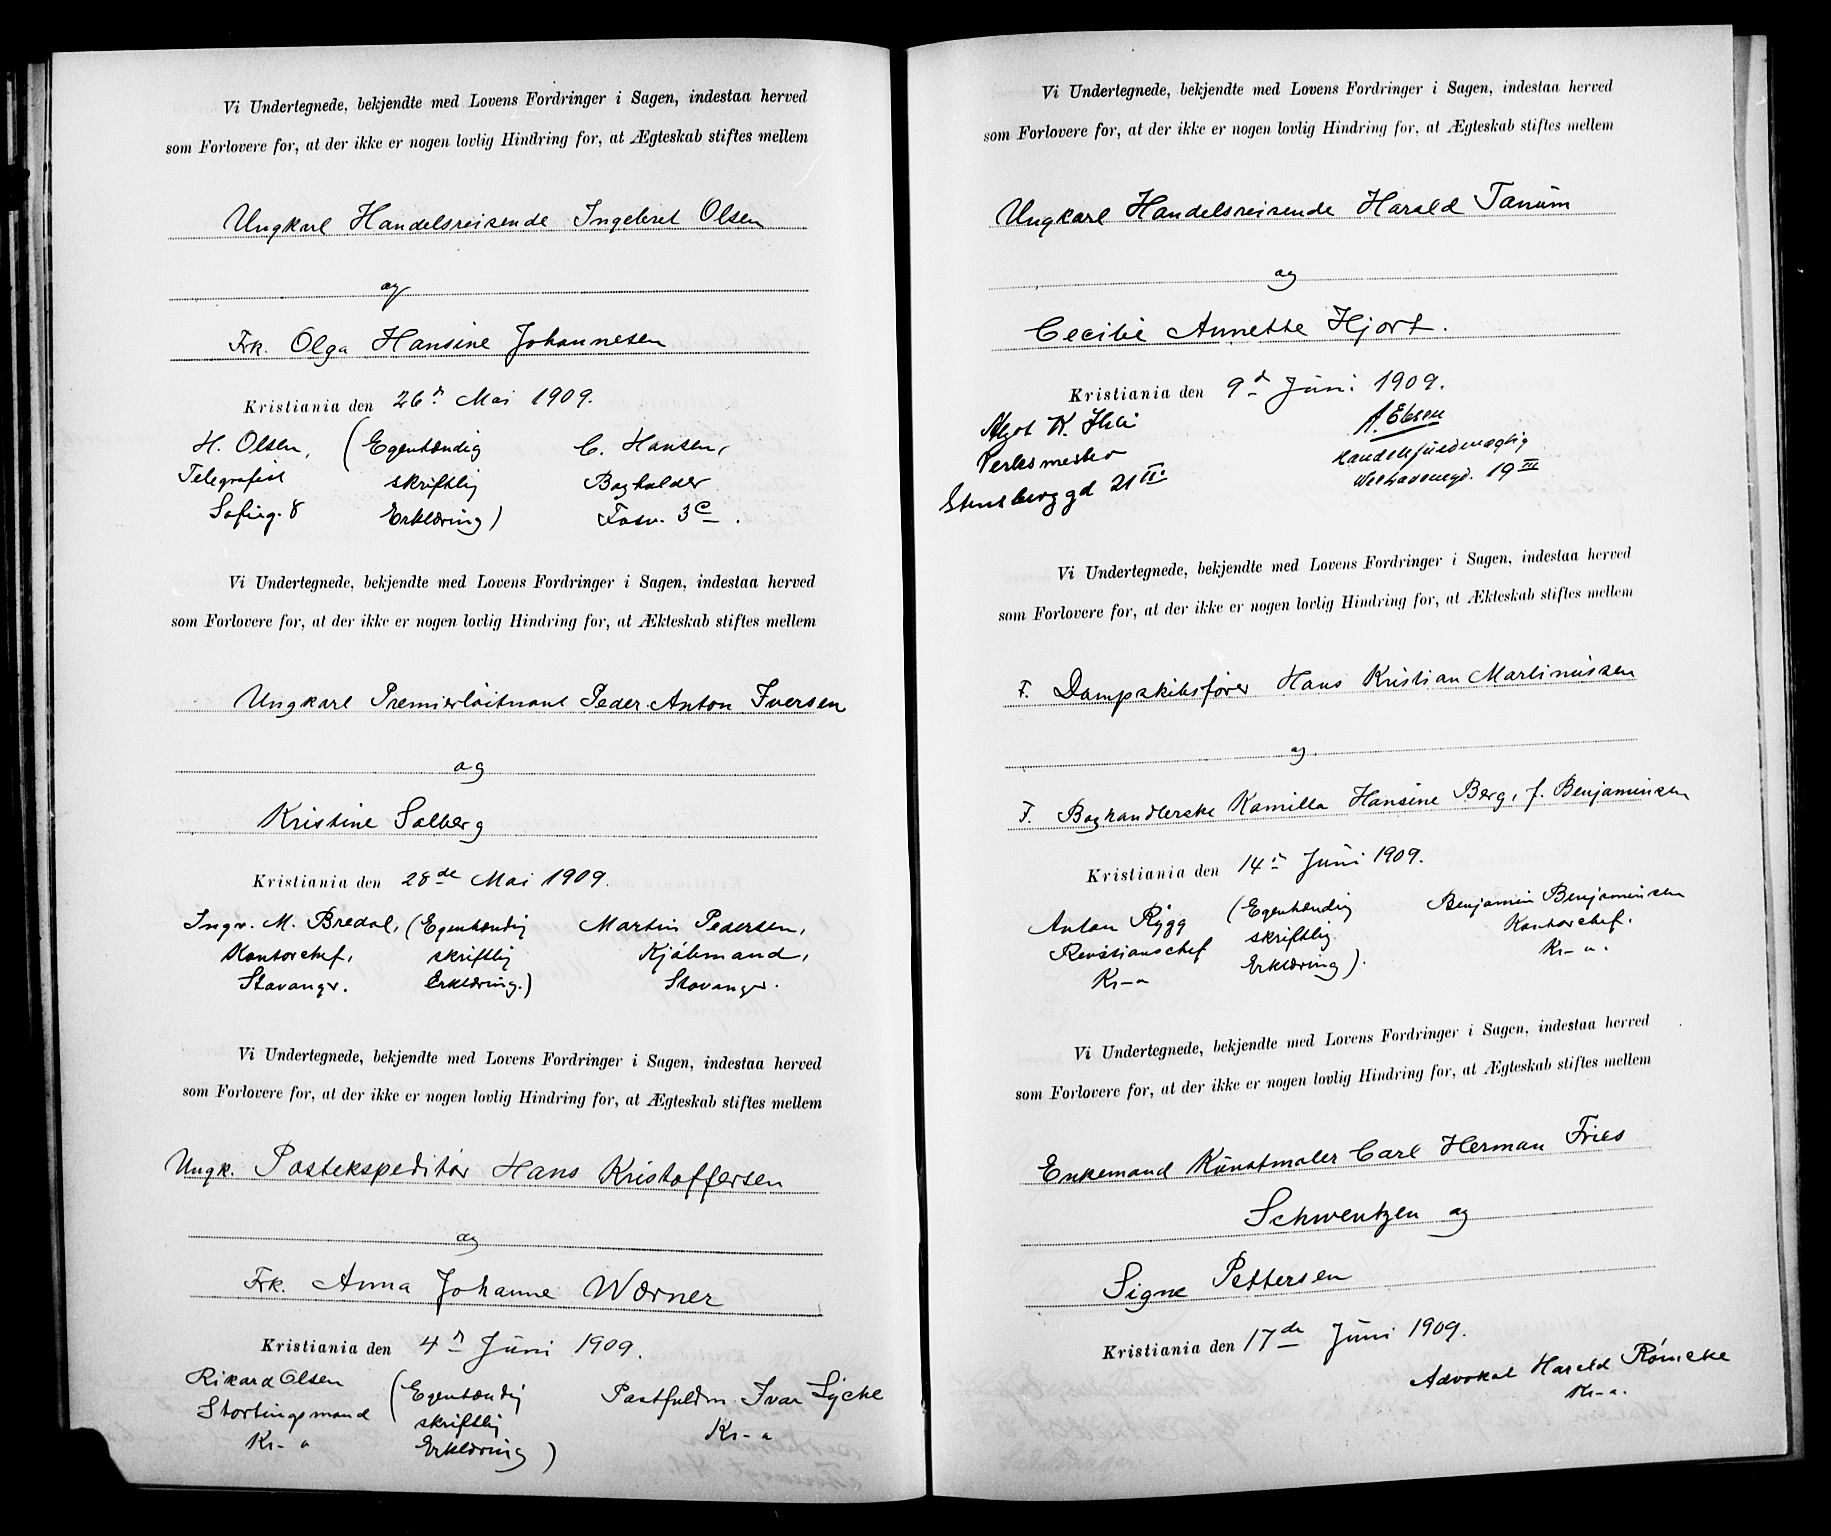 Vi Undertegnede, bekjendte med Lovens Fordringer i Sagen, indestaa herved
som Forlovere for, at der ikke er nogen lovlig Hindring for, at Ægteskab stiftes mellem
Ungkarl Handelsreisende Ingebret Olsen
og
Frk. Olga Hansine Johannesen
Kristiania den 26d Mai 1909.
H. Olsen, (Egenhændig C. Hansen,
Telegrafist skriftlig Bogholder
Sofieg. 8 Erklæring) Fosv. 3c.
Vi Undertegnede, bekjendte med Lovens Fordringer i Sagen, indestaa herved
som Forlovere for, at der ikke er nogen lovlig Hindring for, at Ækteskab stiftes mellem
Ungkarl Premierløitnant Peder Anton Iversen
og
Kristine Solberg
Kristiania den 28de Mai 1909.
Ingv. M. Bredal, (Egenhændig Martin Pedersen,
Kontorchef, skriftlig Kjøbmand,
Stavanger. Erklæring.) Stavanger.
Vi Undertegnede, bekjendte med Lovens Fordringer i Sagen, indestaa herved
som Forlovere for, at der ikke er nogen lovlig Hindring for, at Ægteskab stiftes mellem
Ungk. Postekspeditør Hans Kristoffersen
og
Frk. Anna Johanne Wærner
Kristiania den 4d Juni 1909.
Rikard Olsen (Egenhændig Postfuldm. Ivar Lycke
Stortingsmand skriftlig Kr-a
Kr-a Erklæring)
Vi Undertegnede, bekjendte med Lovens Fordringer i Sagen, indestaa herved
som Forlovere for, at der ikke er nogen lovlig Hindring for, at Ægteskab stiftes mellem
Ungkarl Handelsreisende Harald Tanum
og
Cecilie Annette Hjort.
Kristiania den 9d Juni 1909.
Algot K. A. Ebsen
Verksmester Handelsfuldmægtig
Stensberggd 21 II. Welhavensgd. 19 III
Vi Undertegnede, bekjendte med Lovens Fordringer i Sagen, indestaa herved
som Forlovere for, at der ikke er nogen lovlig Hindring for, at Ækteskab stiftes mellem
F. Dampskibsfører Hans Kristian Martinussen
og
F. Boghandlerske Kamilla Hansine Berg, f. Benjaminsen
Kristiania den 14d Juni 1909.
Anton Rygg (Egenhændig Benjamin Benjaminsen
Revisionschef skriftlig Kontorchef.
Kr-a Erklæring). Kr-a.
Vi Undertegnede, bekjendte med Lovens Fordringer i Sagen, indestaa herved
som Forlovere for, at der ikke er nogen lovlig Hindring for, at Ægteskab stiftes mellem
Enkemand Kunstmaler Carl Herman Fries
Schwentzen og
Signe Pettersen
Kristiania den 17de Juni 1909.
Advokat Harald Rømcke
Kr-a.